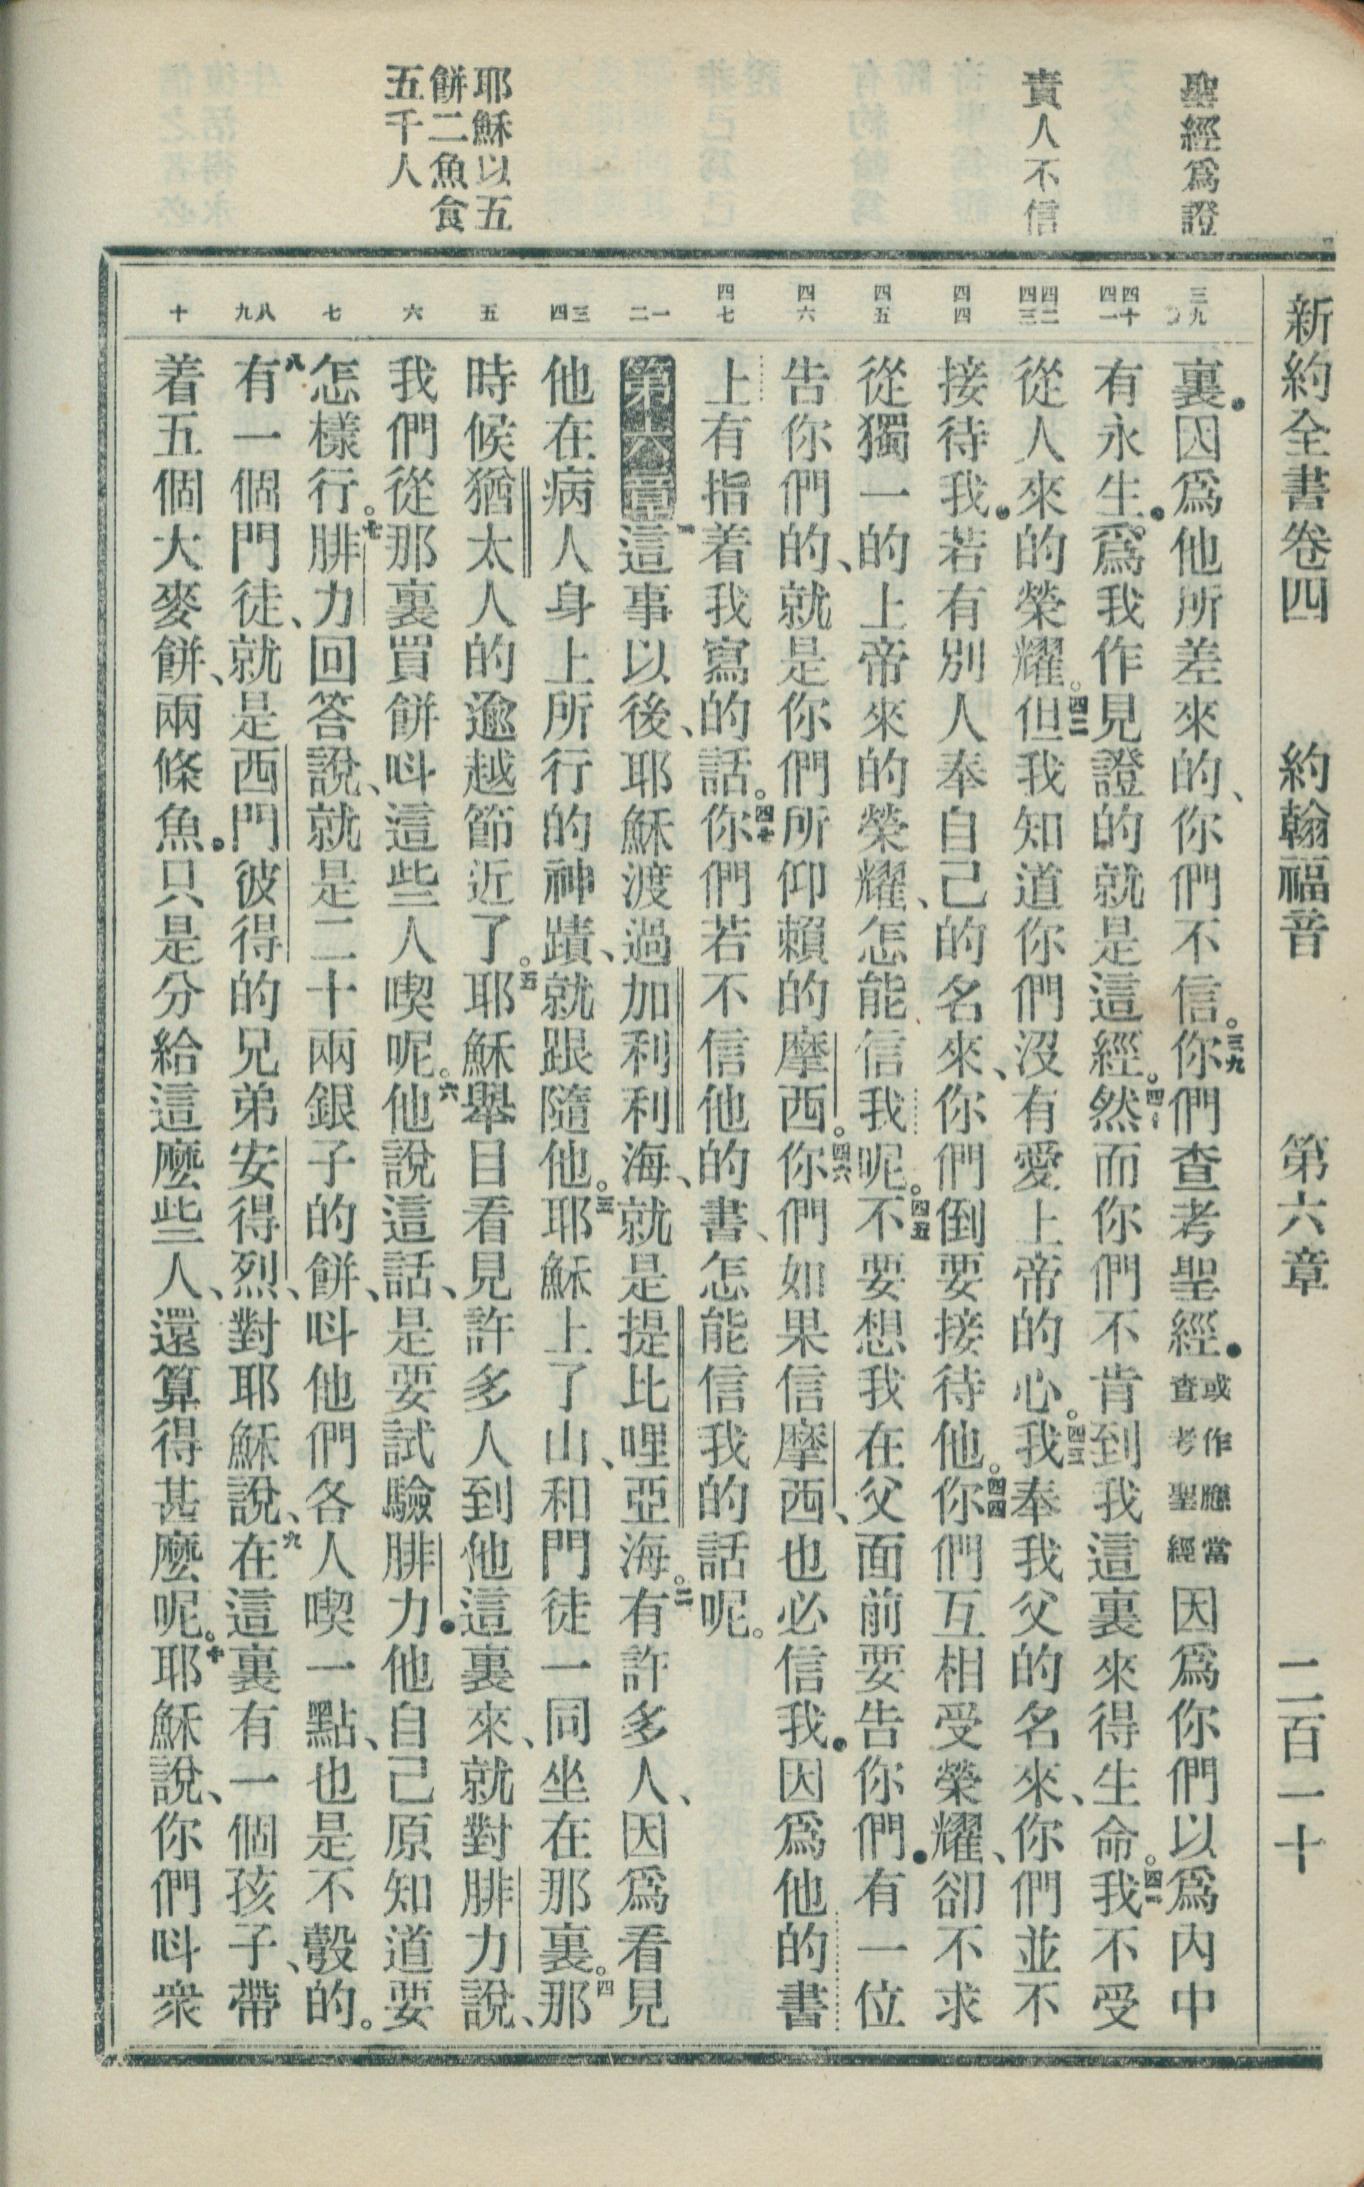 新約全書卷四 約翰福音 第六章 二百一十
聖經爲證
責人不信
耶穌以五
餅二魚食
五千人
三九
四十
四一
四二
四三
四四
四五
四六
四七
一
二
三
四
五
六
七
八
九
十
裏。因爲他所差來的、你們不信。三九你們查考聖經。或作應當查考聖經因爲你們以爲內中
有永生。爲我作見證的就是這經。四十然而你們不肯到我這裏來得生命。四一我不受
從人來的榮耀。四二但我知道你們沒有愛上帝的心。四三我奉我父的名來、你們並不
接待我。若有別人奉自己的名來、你們倒要接待他。四四你們互相受榮耀、卻不求
從獨一的上帝來的榮耀、怎能信我呢。四五不要想我在父面前要告你們。有一位
告你們的、就是你們所仰賴的摩西。四六你們如果信摩西、也必信我。因爲他的書
上有指着我寫的話。四七你們若不信他的書、怎能信我的話呢。
第六章 一這事以後、耶穌渡過加利利海、就是提比哩亞海。二有許多人、因爲看見
他在病人身上所行的神蹟、就跟隨他。三耶穌上了山、和門徒一同坐在那裏。四那
時候猶太人的逾越節近了。五耶穌舉目看見許多人到他這裏來、就對腓力說、
我們從那裏買餅呌這些人喫呢。六他說這話、是要試驗腓力。他自己原知道要
怎樣行。七腓力回答說、就是二十兩銀子的餅、呌他們各人喫一點、也是不彀的。
八有一個門徒、就是西門彼得的兄弟安得烈、對耶穌說、九在這裏有一個孩子、帶
着五個大麥餅、兩條魚。只是分給這麼些人、還算得甚麼呢。十耶穌說、你們呌衆